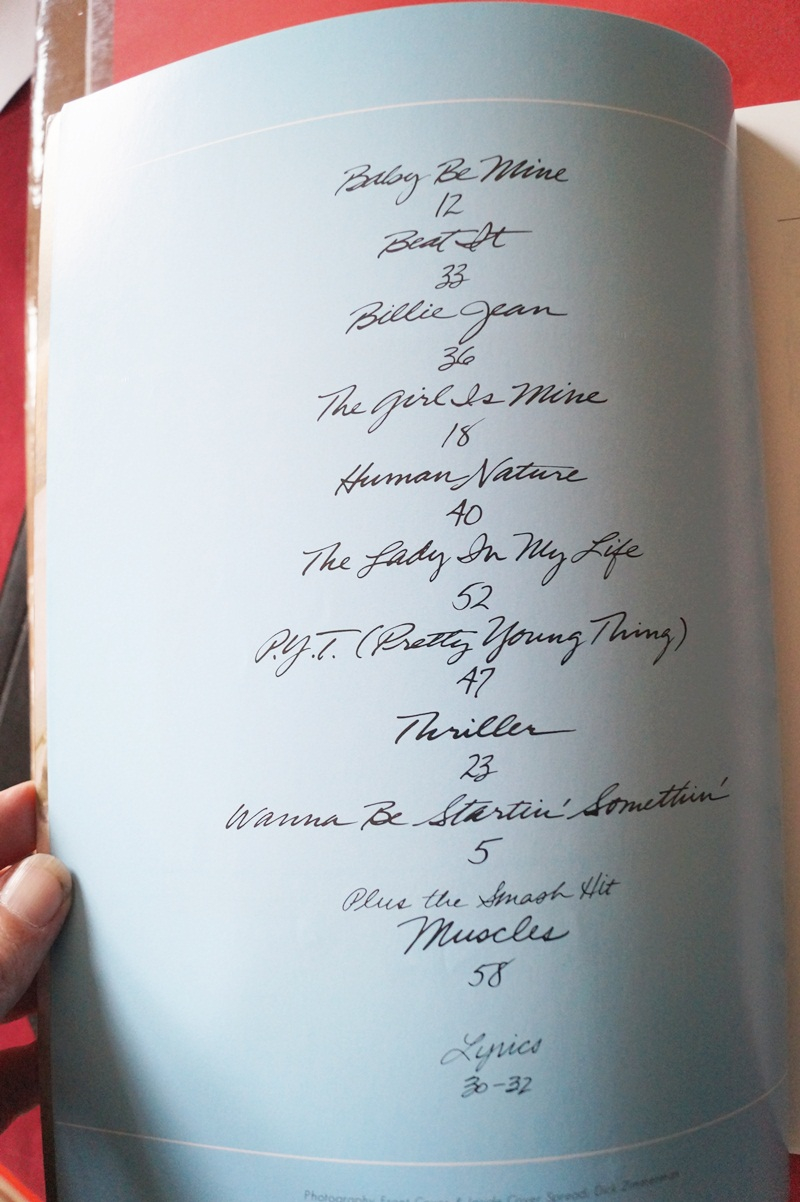 Baby Be Mine
12
Beat It
33
Billie Jean
36
The Girl Is Mine
18
Human Nature
40
The Lady In My Life
52
P.Y.T. (Pretty Young Thing)
47
Thriller
23
Wanna Be Startin' Somethin'
5
Plus the Smash Hit
Muscles
58
Lyrics
30-32
Photography Front Cover & Inside Cover Spread: Dick Zimmerman